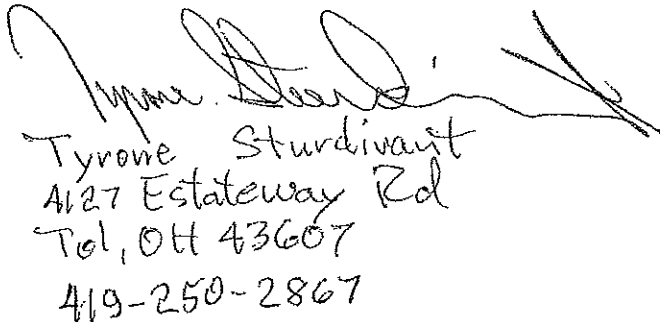 Tyrone Sturdivant
Tyrone Sturdivant
4127 Estateway Rd
Tol, OH 43607
419-250-2867